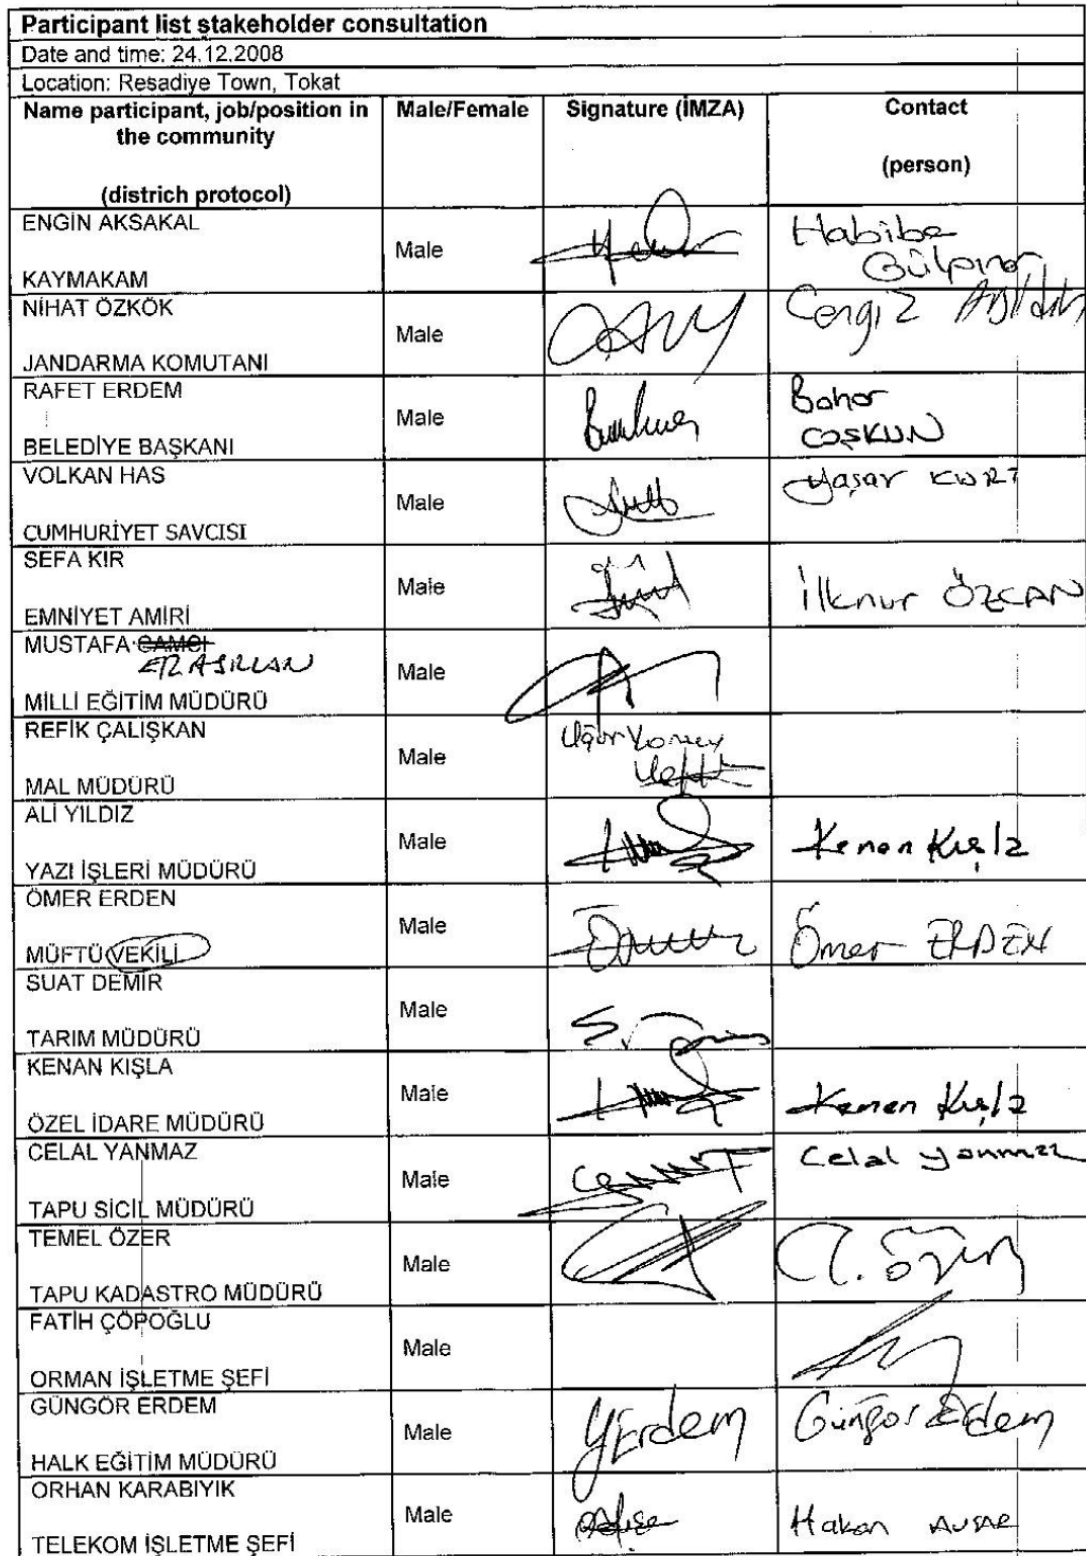 Participant list stakeholder consultation
Date and time: 24.12.2008
Location: Resadiye Town, Tokat
Name participant, job/position in the community (districh protocol) Male/Female Signature (İMZA) Contact (person)
ENGİN AKSAKAL
KAYMAKAM
Male
Habibe
Gülpınar
NİHAT ÖZKÖK
JANDARMA KOMUTANI
Male
Cengiz
RAFET ERDEM
BELEDİYE BAŞKANI
Male
Bahar
COŞKUN
VOLKAN HAS
CUMHURİYET SAVCISI
Male
Yaşar KURT
SEFA KIR
EMNİYET AMİRİ
Male
İlknur ÖZCAN
MUSTAFA CAMCI
ERASLAN
MİLLİ EĞİTİM MÜDÜRÜ
Male
REFİK ÇALIŞKAN
MAL MÜDÜRÜ
Male
Uğur
ALİ YILDIZ
YAZI İŞLERİ MÜDÜRÜ
Male
Kenan Kışla
ÖMER ERDEN
MÜFTÜ VEKİLİ
Male
Ömer ERDEN
SUAT DEMİR
TARIM MÜDÜRÜ
Male
KENAN KIŞLA
ÖZEL İDARE MÜDÜRÜ
Male
Kenan Kışla
CELAL YANMAZ
TAPU SİCİL MÜDÜRÜ
Male
Celal Yanmaz
TEMEL ÖZER
TAPU KADASTRO MÜDÜRÜ
Male
T. ÖZER
FATİH ÇÖPOĞLU
ORMAN İŞLETME ŞEFİ
Male
GÜNGÖR ERDEM
HALK EĞİTİM MÜDÜRÜ
Male
YErdem
Güngör Erdem
ORHAN KARABIYIK
TELEKOM İŞLETME ŞEFİ
Male
Hakan AVŞAR